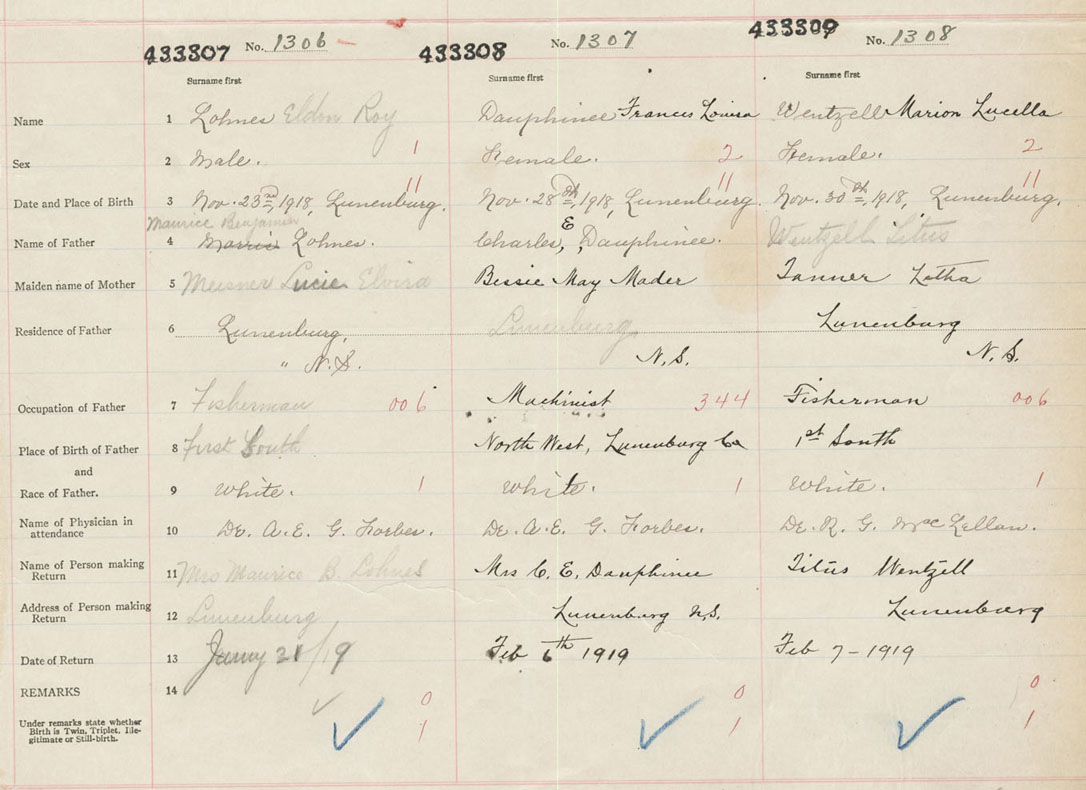 433307 No. 1306 433308 No. 1307 433309 No. 1308
Surname first Surname first Surname first
Name 1 Lohnes Eldin Roy Dauphinee Francis Louisa Wentzell Marion Lucella
Sex 2 Male. 1 Female. 2 Female. 2
11 11 11
Date and Place of Birth 3 Nov. 23rd, 1918, Lunenburg. Nov. 28th, 1918, Lunenburg. Nov. 30th, 1918, Lunenburg.
Maurice Benjamin E
Name of Father 4 Morris Lohnes. Charles, Dauphinee. Wentzell Titus
Maiden name of Mother 5 Meisner Lucie Elvira Bessie May Mader Tanner Letha
Residence of Father 6 Lunenburg, Lunenburg Lunenburg
" N.S. N.S. N.S.
Occupation of Father 7 Fisherman 006 Machinist 344 Fisherman 006
Place of Birth of Father 8 First South North West, Lunenburg Co 1st South
and
Race of Father. 9 White. 1 White. 1 White. 1
Name of Physician in
attendance 10 Dr. A. E. G. Forbes. Dr. A. E. G. Forbes. Dr. R. G. MacLellan.
Name of Person making
Return 11 Mrs Maurice B. Lohnes Mrs C. E. Dauphinee Titus Wentzell
Address of Person making
Return 12 Lunenburg Lunenburg N.S. Lunenburg
Date of Return 13 Jany 21/19 Feb 6th 1919 Feb 7-1919
REMARKS 14 0 0 0
Under remarks state whether
Birth is Twin, Triplet, Ille-
gitimate or Still-birth. 1 1 1